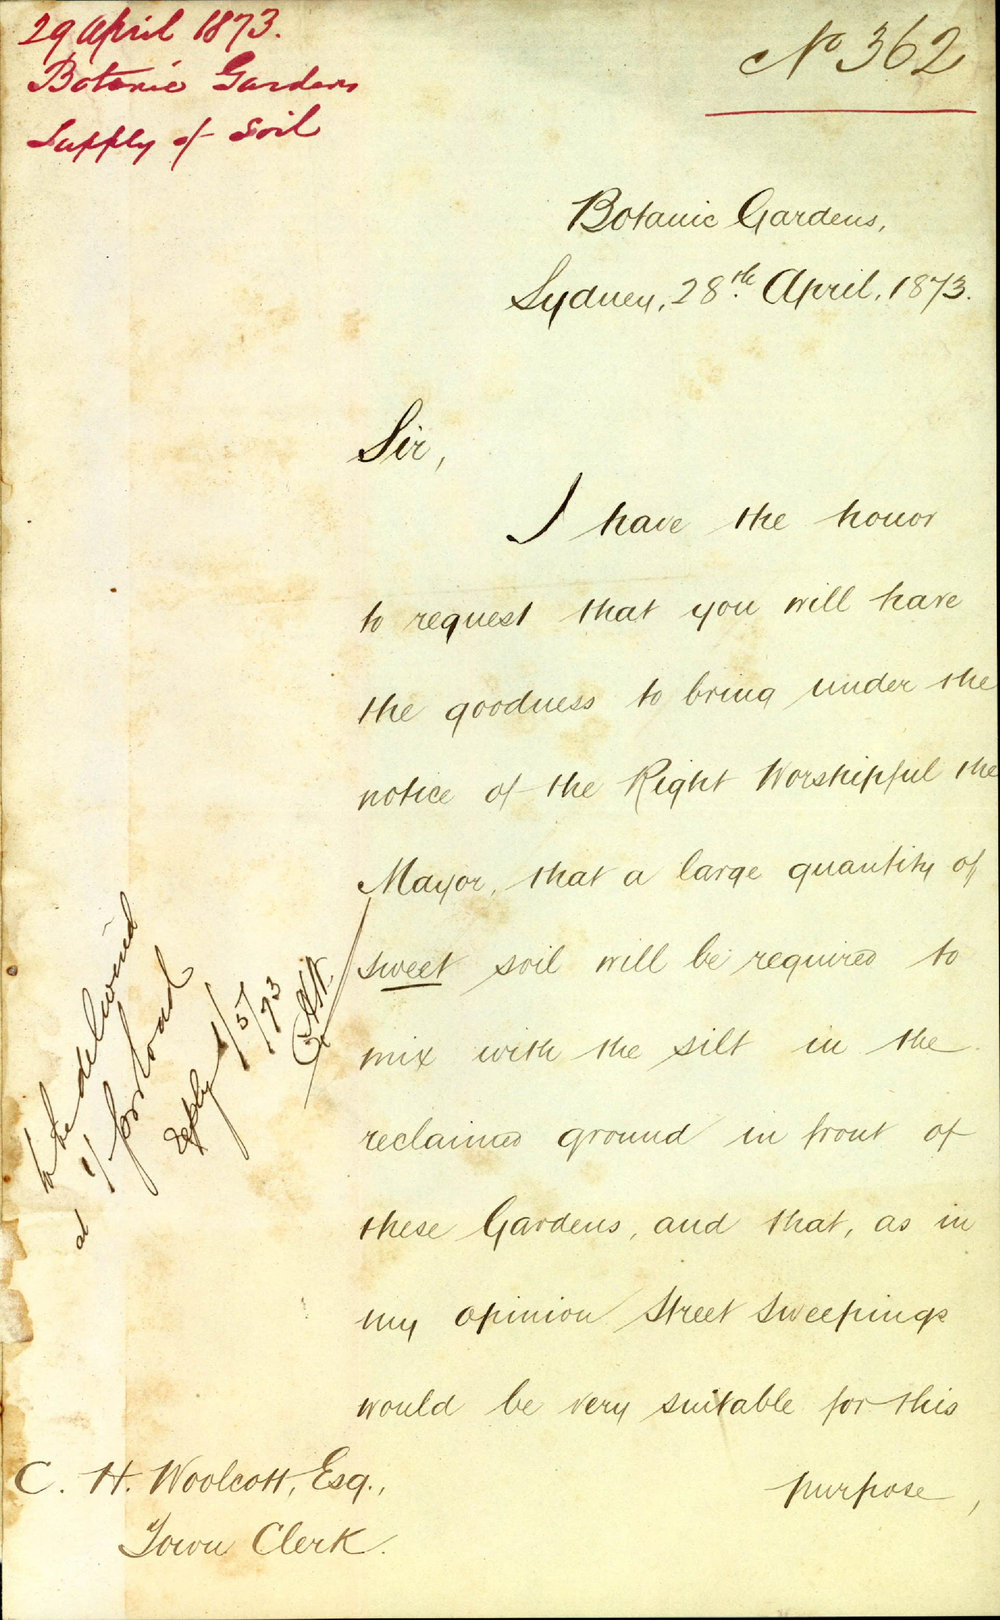 29 April 1873.
Botanic Gardens
Supply of Soil
No 362
Botanic Gardens,
Sydney, 28th. April, 1873.
Sir,
I have the honor
to request that you will have
the goodness to bring under the
notice of the Right Worshipful the
Mayor, that a large quantity of
sweet soil will be required to
mix with the silt in the
reclaimed ground in front of
these Gardens, and that, as in
my opinion Street Sweepings
would be very suitable for this
purpose,
To be delivered
at 1/ per load
Reply 1/5/73
C. H. Woolcott, Esq.,
Town Clerk.